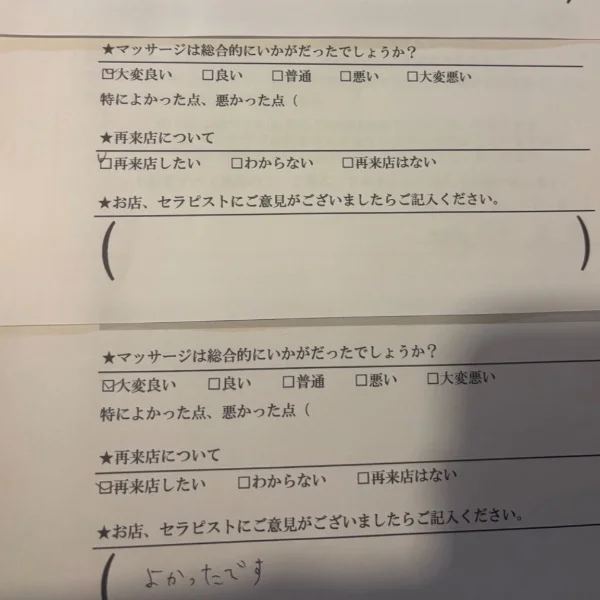 ★マッサージは総合的にいかがだったでしょうか？
☑大変良い　□良い　□普通　□悪い　□大変悪い
特によかった点、悪かった点（
★再来店について
☑再来店したい　□わからない　□再来店はない
★お店、セラピストにご意見がございましたらご記入ください。
（　　　　　）
★マッサージは総合的にいかがだったでしょうか？
☑大変良い　□良い　□普通　□悪い　□大変悪い
特によかった点、悪かった点（
★再来店について
☑再来店したい　□わからない　□再来店はない
★お店、セラピストにご意見がございましたらご記入ください。
（　よかったです